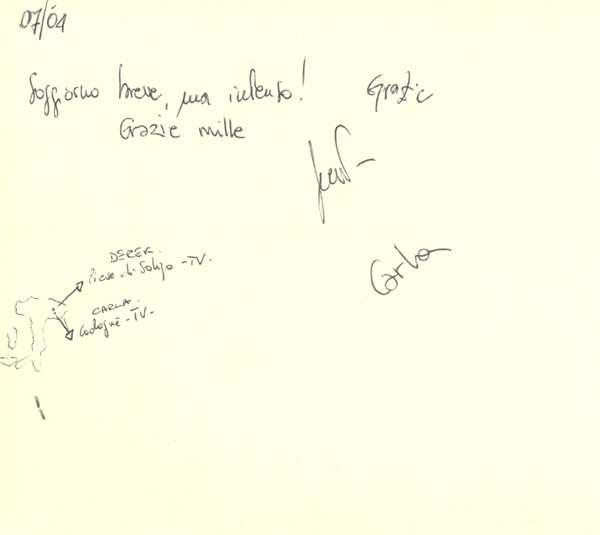 07/04
Soggiorno breve, ma intenso! Grazie
Grazie mille
Carla
DEREK.
Pieve di Soligo - TV.
CARLA.
Codognè - TV -